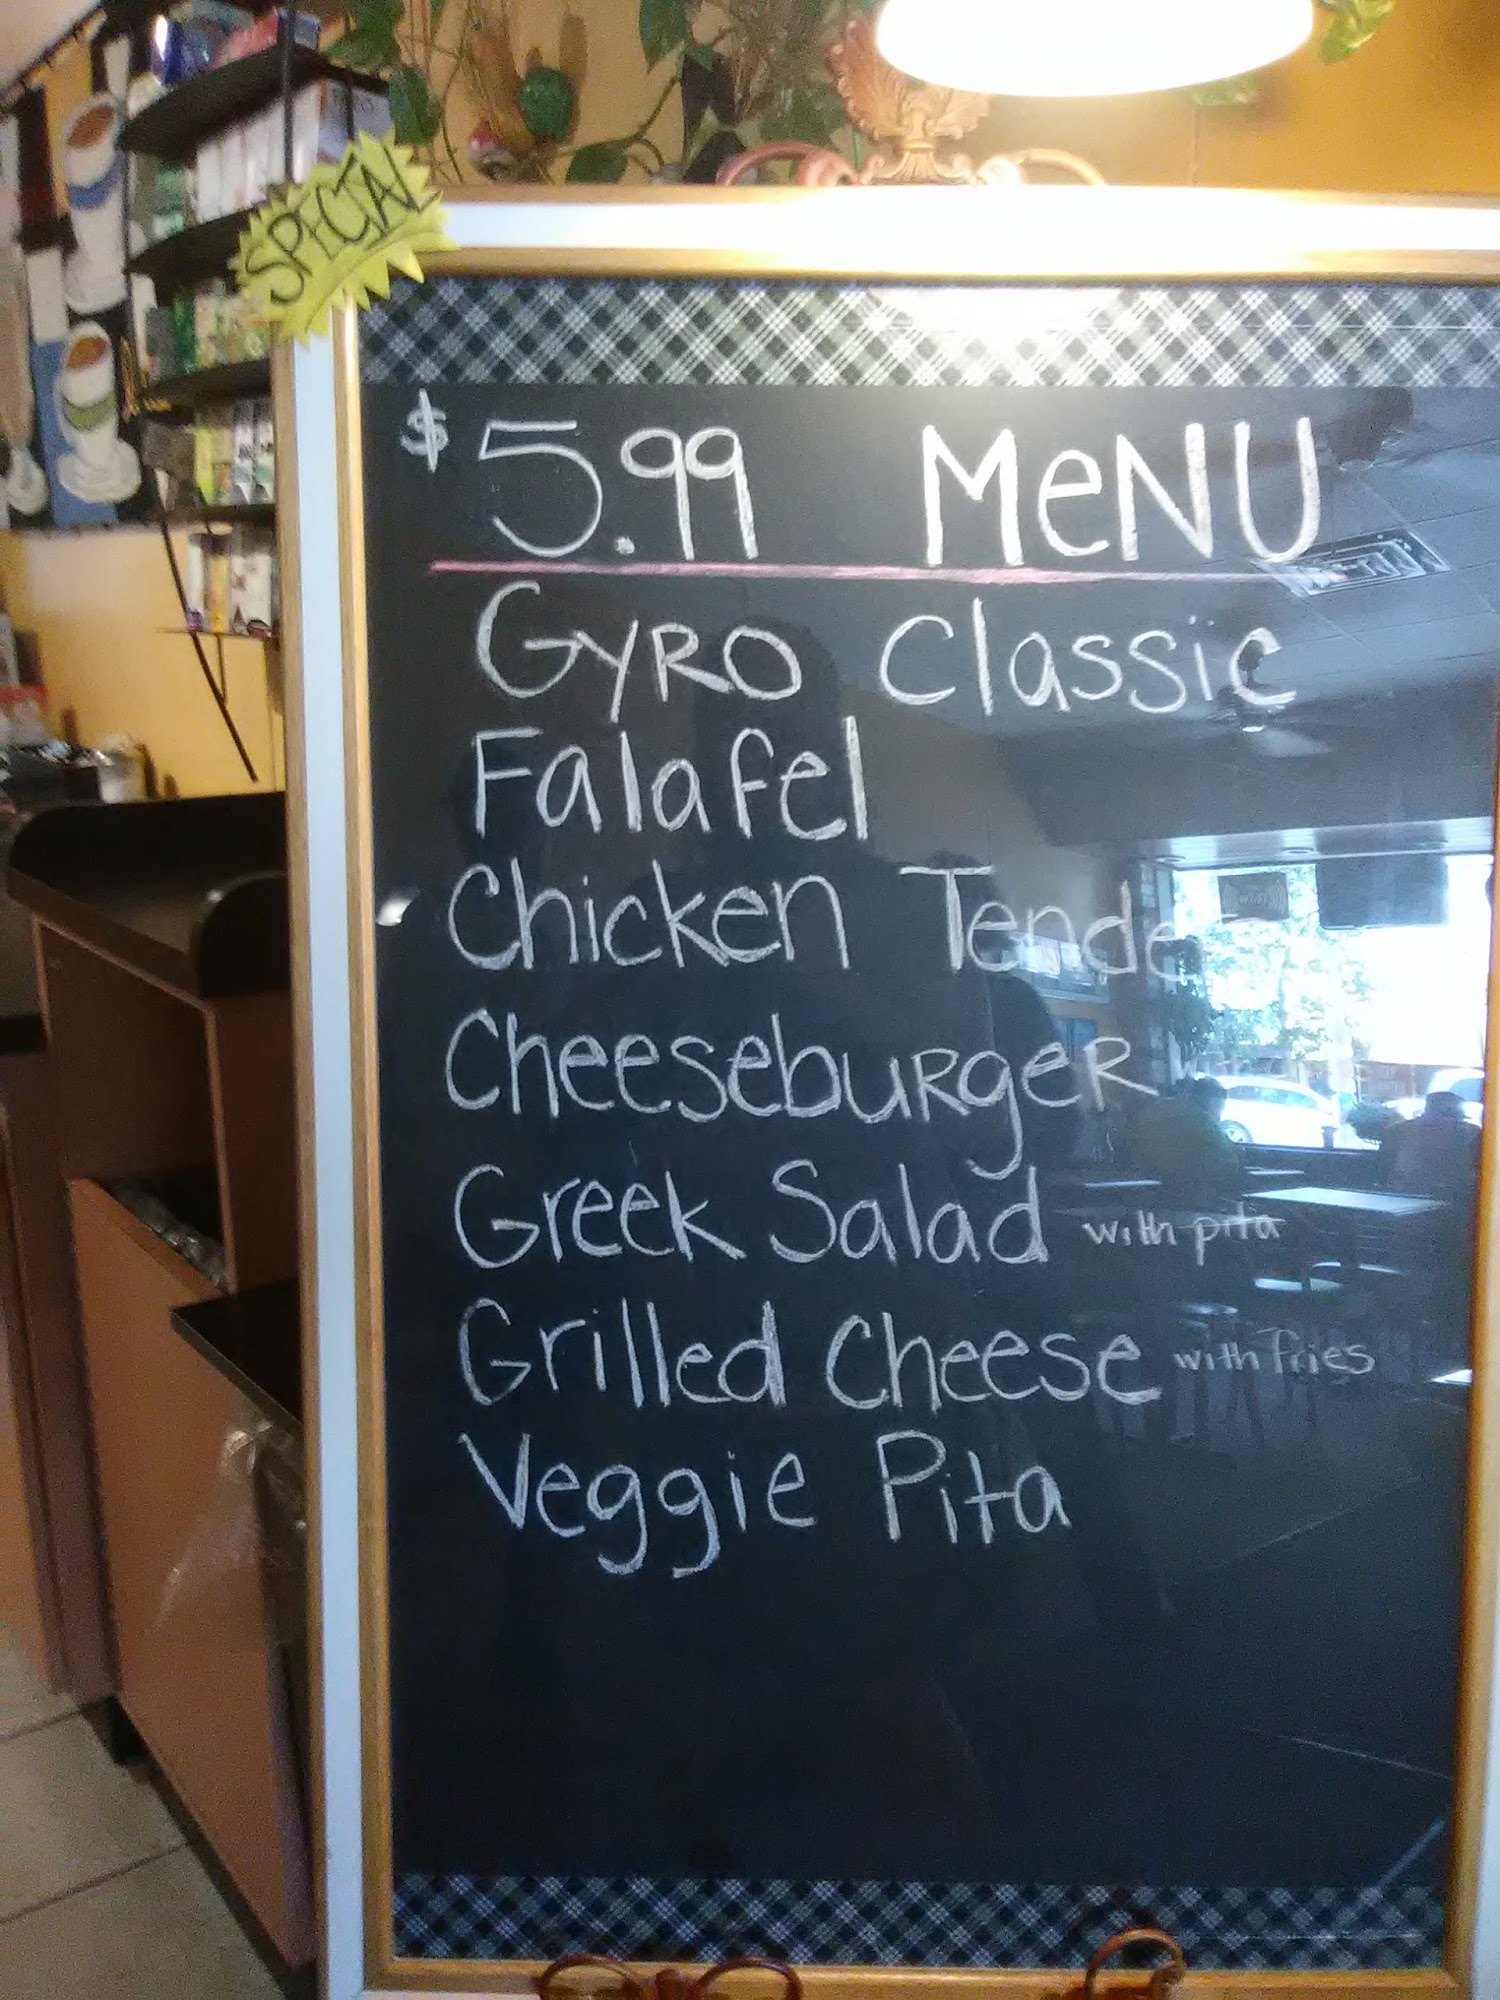 SPECIAL
$5.99 MeNU
GyRO Classic
Falafel
Chicken Tende
CheeseburgeR
Greek Salad with pita
Grilled Cheese with fries
Veggie Pita